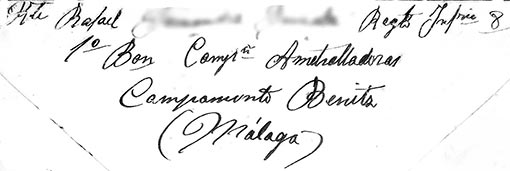 Rte Rafael Regto Infria 8
1º Bon Compñ Ametralladoras
Campamento Benitz
(Málaga)